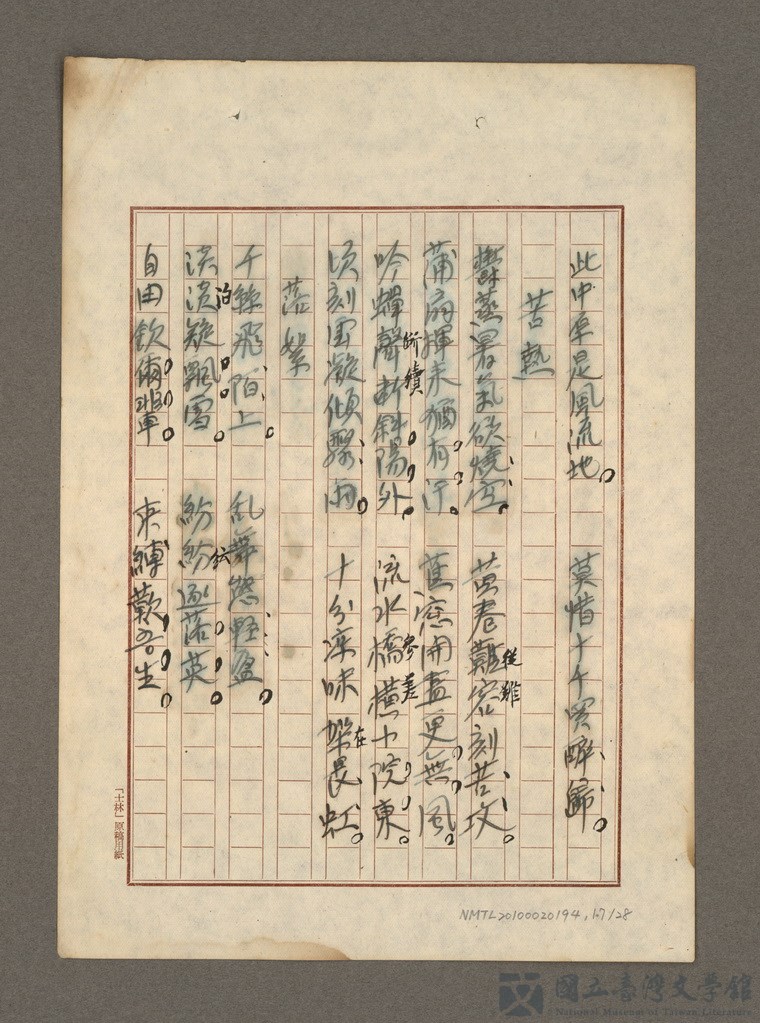 此中原是風流地。 莫惜十千買醉歸。
苦熱
鬱蒸暑氣欲燒空。 黃卷難容刻苦攻
從難
蒲扇揮来猶有汗。 蕉窓開盡更無風。
吟蟬聲斷斜陽外。 流水橋横小院東。
断續 參差
頃刻雲凝傾驟雨。 十分凉味架晨虹。
在
落絮
千絲飛陌上。 乱舞態軽盈。
泊
淡淡疑飄雪。 紛紛逐落英。
紜
自由欽爾輩。 束縛歎吾生。
「士林」原稿用紙
NMTL20100020194,17/28
國立臺灣文學館
National Museum of Taiwan Literature